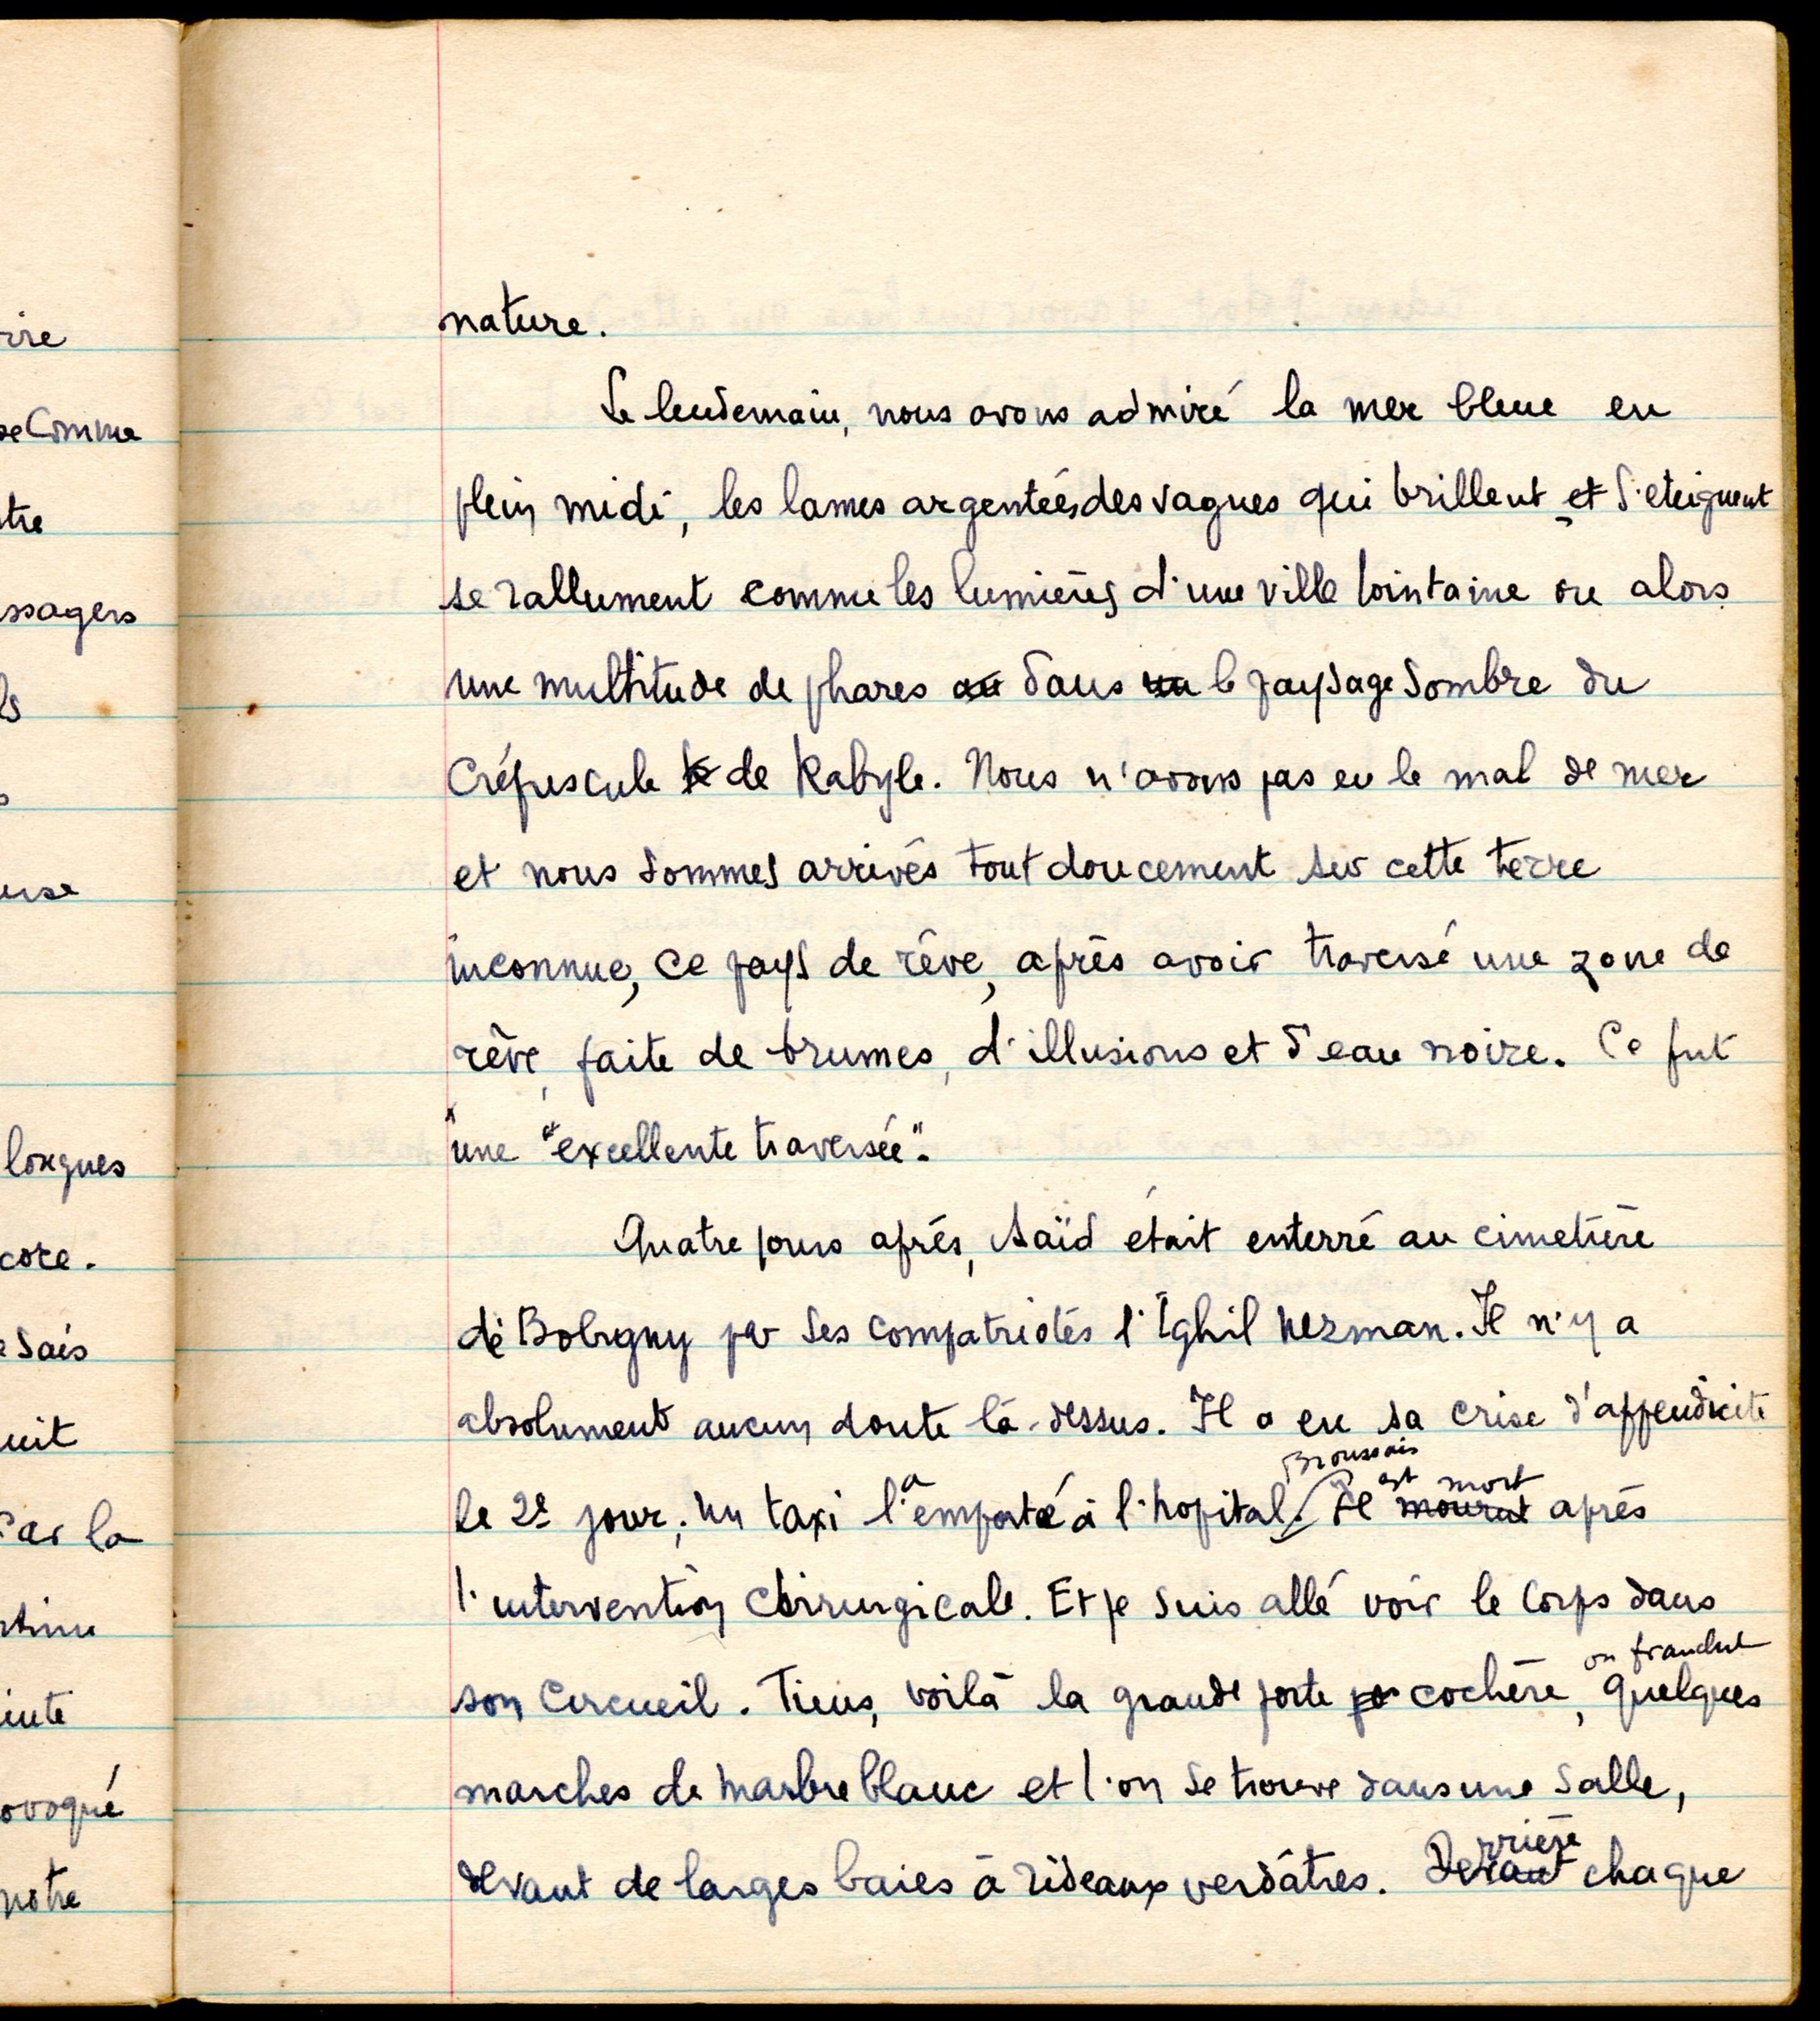 ire
se Comme
tre
ssagers
ls
s
euse
longues
core.
e sais
uit
Par la
inte
ovoqué
notre
nature.
Le lendemain, nous avons admiré la mer bleue en
plein midi, les lames argentées des vagues qui brillent et s'eteignent
se rallument comme les lumières d'une ville lointaine ou alors
une multitude de phares au dans un le paysage sombre du
Crépuscule k de Kabyle. Nous n'avons pas eu le mal de mer
et nous sommes arrivés tout doucement sur cette terre
inconnue, ce pays de rêve, après avoir traversé une zone de
rêve, faite de brumes, d'illusions et d'eau noire. Ce fut
une "excellente traversée".
Quatre jours après, Saïd était enterré au cimetière
de Bobigny par ses compatriotes d'Ighil Nezman. Il n'y a
absolument aucun doute là-dessus. Il a eu sa crise d'appendicite
Broussais est mort
le 2e jour; un taxi l'a emporté à l'hopital. Il mourut après
l'intervention chirurgicale. Et je suis allé voir le corps dans
on franchit
son cercueil. Tiens, voilà la grande porte po cochère, quelques
marches de marbre blanc et l'on se trouve dans une salle,
rrière
devant de larges baies à rideaux verdâtres. Devant chaque